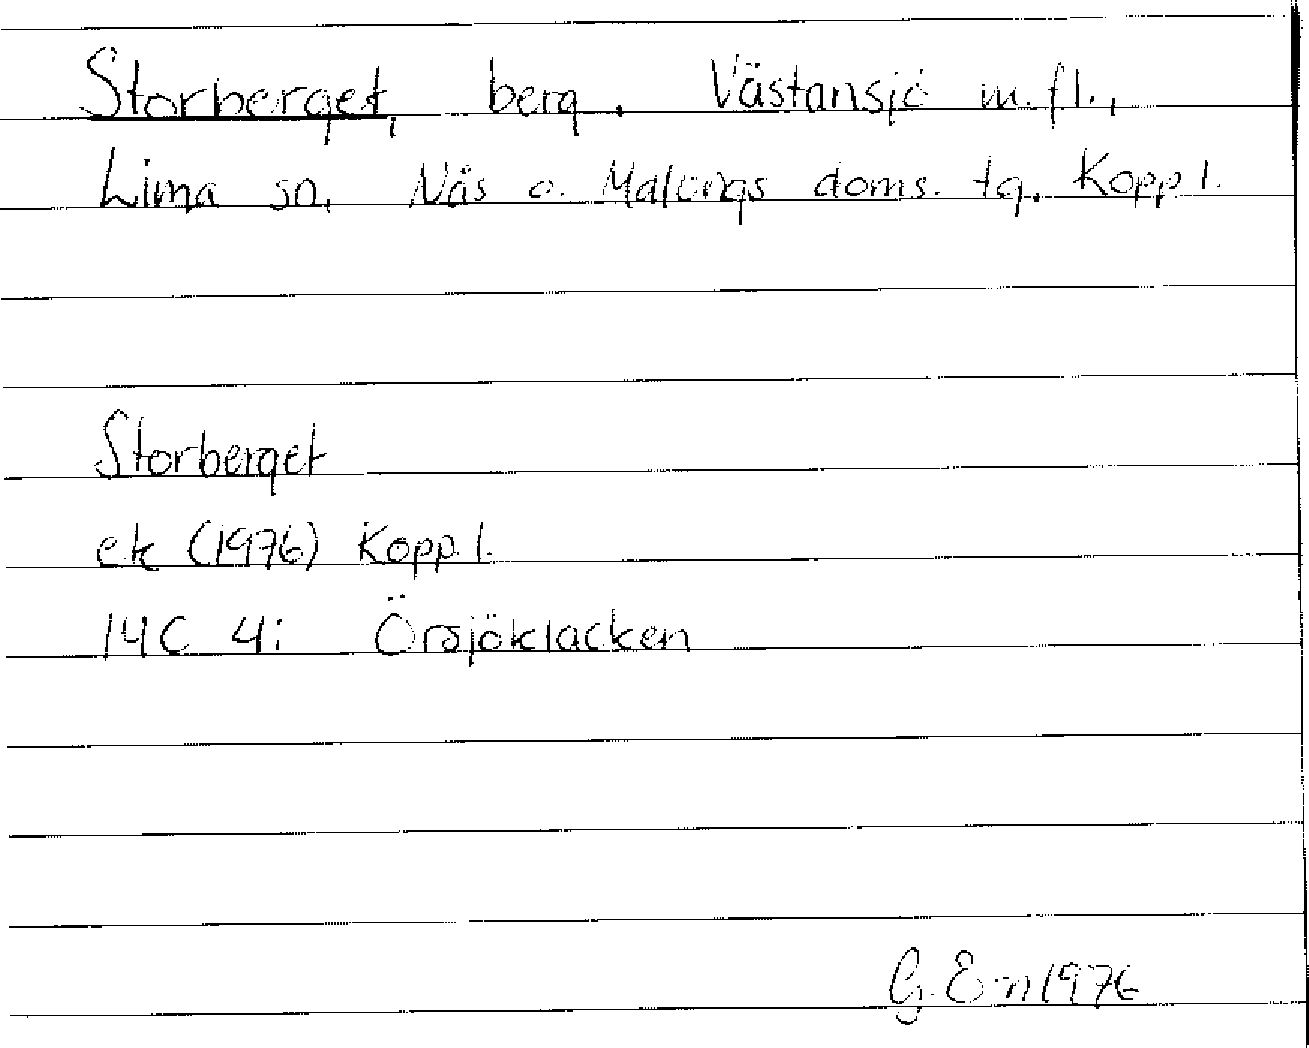 Storberget, berg. Västansjö m.fl.,
Lima sn, Nås o. Malungs doms. tg, Kopp l.
Storberget
ek (1976) Kopp. l.
14C 4i Örsjöklacken
G. E-n 1976